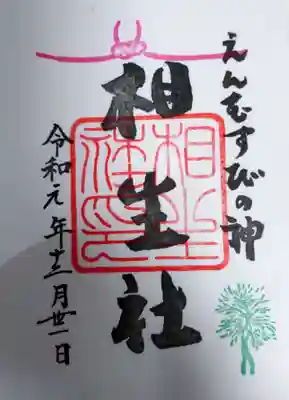 えんむすびの神
相生社
令和元年十二月廿一日